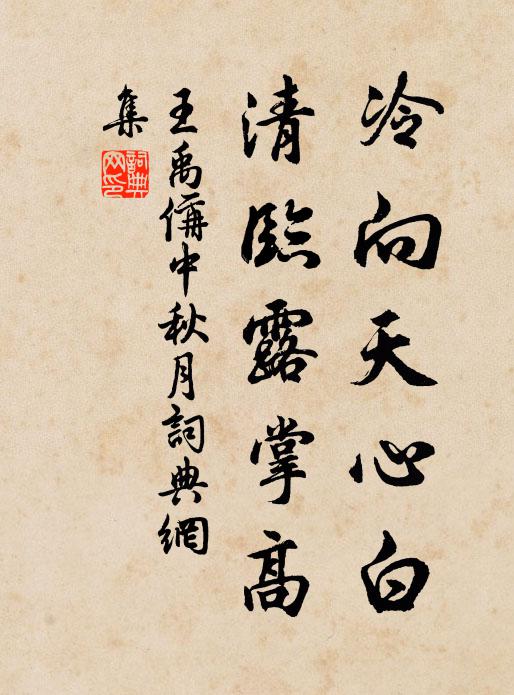 冷向天心白
清臨露掌高
王禹偁中秋月詞典網
集
詞典
网印